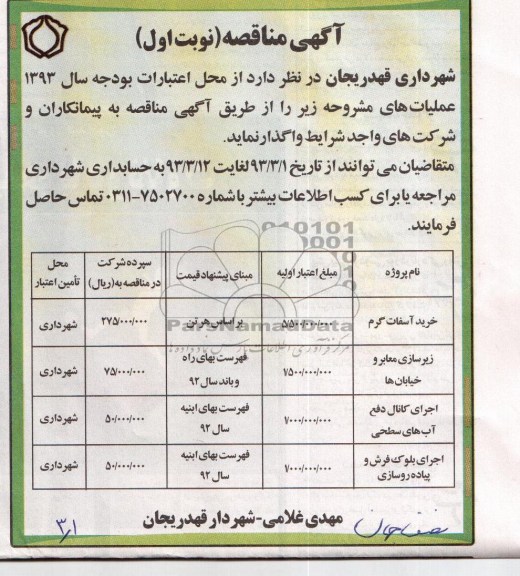 آگهی مناقصه (نوبت اول)
شهرداری قهدریجان در نظر دارد از محل اعتبارات بودجه سال ۱۳۹۳
عملیات‌های مشروحه زیر را از طریق آگهی مناقصه به پیمانکاران و
شرکت‌های واجد شرایط واگذار نماید.
متقاضیان می توانند از تاریخ ۹۳/۳/۱ لغایت ۹۳/۳/۱۲ به حسابداری شهرداری
مراجعه یا برای کسب اطلاعات بیشتر با شماره ۷۵۰۲۷۰۰-۰۳۱۱ تماس حاصل
فرمایند.
نام پروژه | مبلغ اعتبار اولیه | مبنای پیشنهاد قیمت | سپرده شرکت در مناقصه به (ریال) | محل تأمین اعتبار
خرید آسفات گرم | ۵/۵۰۰/۰۰۰/۰۰۰ | بر اساس هر تن | ۲۷۵/۰۰۰/۰۰۰ | شهرداری
زیرسازی معابر و خیابان‌ها | ۱/۵۰۰/۰۰۰/۰۰۰ | فهرست بهای راه و باند سال ۹۲ | ۷۵/۰۰۰/۰۰۰ | شهرداری
اجرای کانال دفع آب‌های سطحی | ۱/۰۰۰/۰۰۰/۰۰۰ | فهرست بهای ابنیه سال ۹۲ | ۵۰/۰۰۰/۰۰۰ | شهرداری
اجرای بلوک فرش و پیاده روسازی | ۱/۰۰۰/۰۰۰/۰۰۰ | فهرست بهای ابنیه سال ۹۲ | ۵۰/۰۰۰/۰۰۰ | شهرداری
مهدی غلامی-شهردار قهدریجان
نصف جهان
۳/۱
ParsNamadData